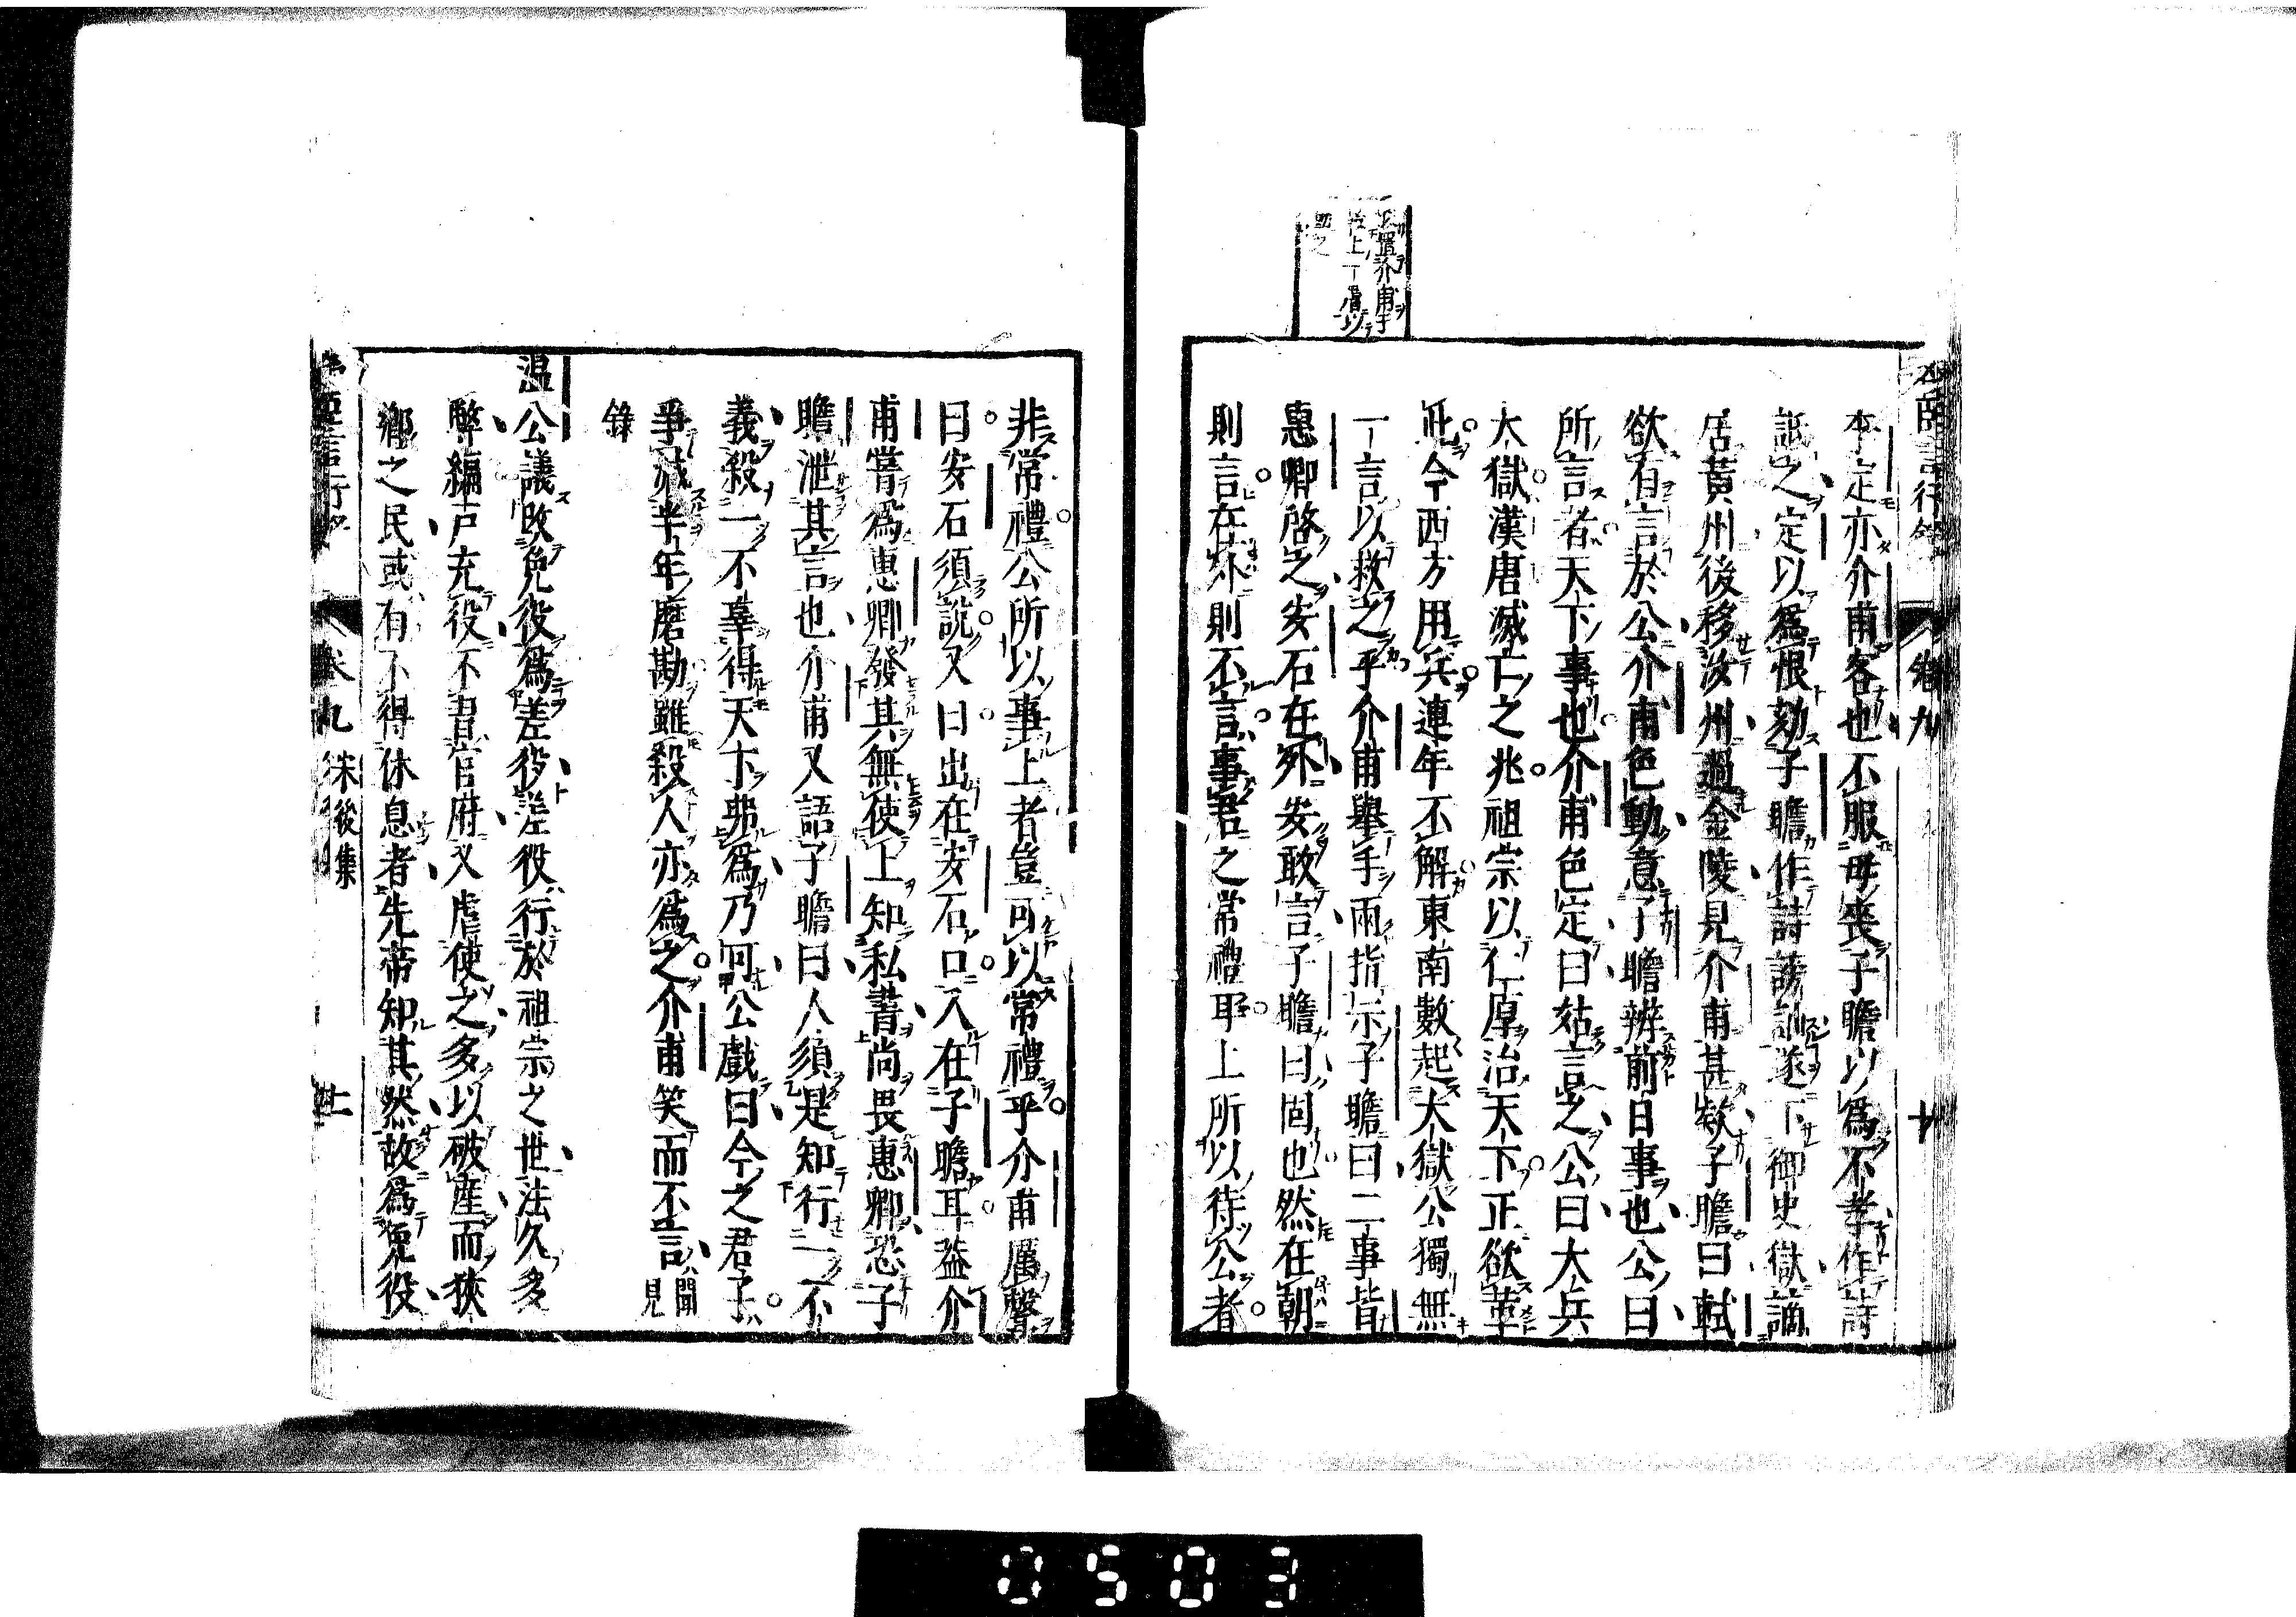 李定亦介甫客也不服母喪子瞻以為不孝作詩
詆之定以為恨劾子瞻作詩謗訕遂下御史獄謫
居黃州後移汝州過金陵見介甫甚欵子瞻曰軾
欲有言於公介甫色動意子瞻辨前日事也公曰
所言者天下事也介甫色定曰姑言之公曰大兵
大獄漢唐滅亡之兆祖宗以仁厚治天下正欲革
此今西方用兵連年不解東南數起大獄公獨無
一言以救之乎介甫舉手兩指示子瞻曰二事皆
惠卿啓之安石在外安敢言子瞻曰固也然在朝
則言在外則不言事君之常禮耶上所以待公者
非常禮公所以事上者豈可以常禮乎介甫厲聲
曰安石須說又曰出在安石口入在子瞻耳蓋介
甫嘗為惠卿發其無使上知私書尚畏惠卿恐子
瞻泄其言也介甫又語子瞻曰人須是知行一不
義殺一不辜得天下弗為乃可公戲曰今之君子
爭減半年磨勘雖殺人亦為之介甫笑而不言聞見
錄
温公議改免役為差役差役行於祖宗之世法久多
弊編戶充役不習官府又虐使之多以破產而狹
鄉之民或有不得休息者先帝知其然故為免役
卷九
卷九 宋後集